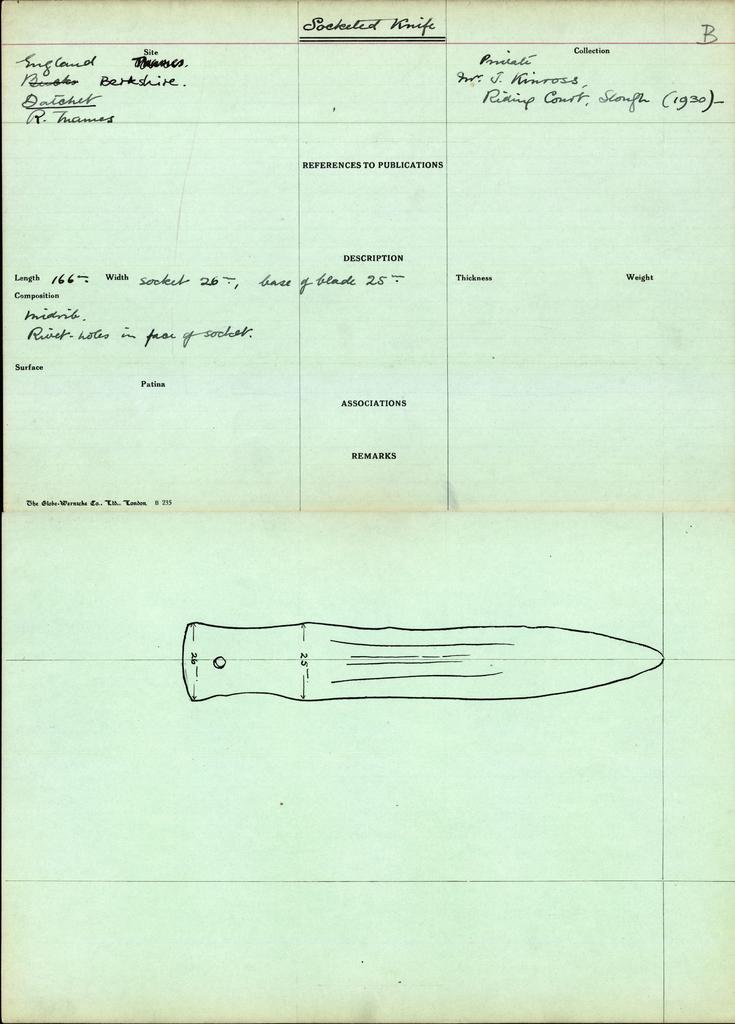 Socketed Knife
B
Site
England Thames.
Bucks Berkshire.
Datchet
R. Thames
Collection
Private
Mr. J. Kinross,
Riding Court, Slough (1930)—
REFERENCES TO PUBLICATIONS
DESCRIPTION
Length 166 — Width socket 26 —, base of blade 25 —
Thickness Weight
Composition
Midrib.
Rivet-holes in face of socket.
Surface
Patina
ASSOCIATIONS
REMARKS
The Globe-Wernicke Co., Ltd., London. B 235
26 —
25 —